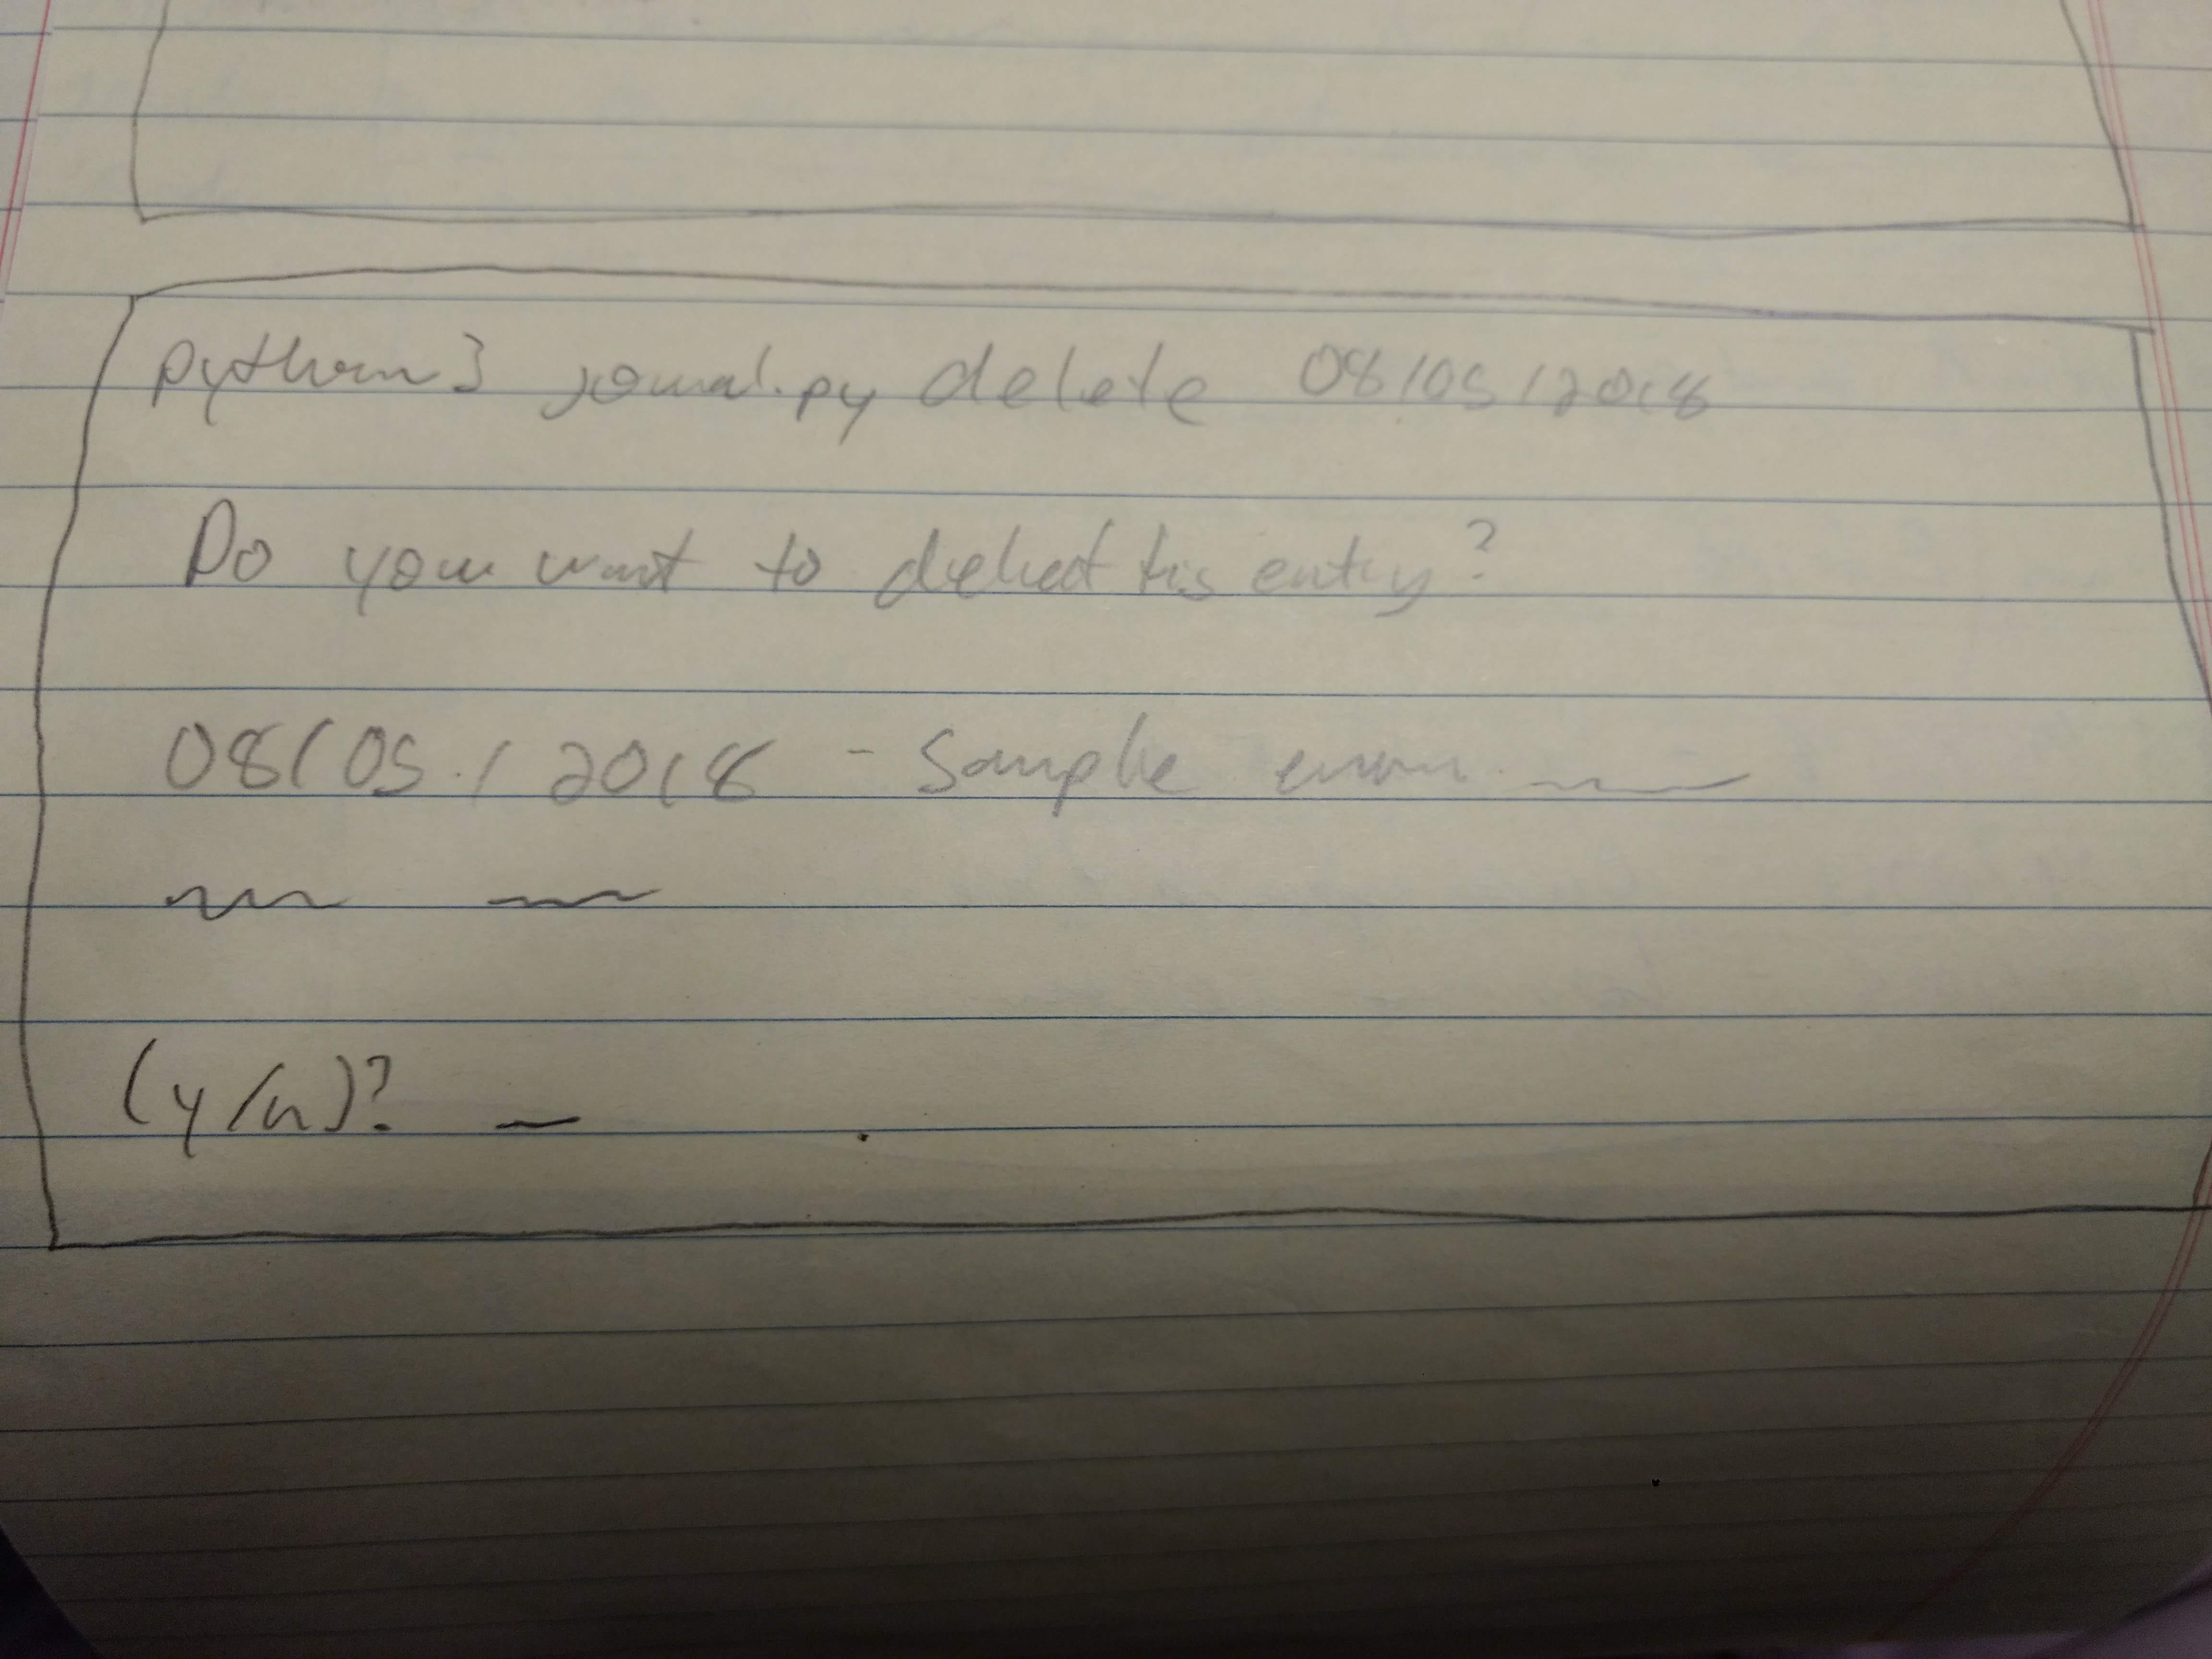 python3 journal.py delete 08/05/2018
Do you want to delete this entry?
08/05/2018 - Sample
(y/n)? _